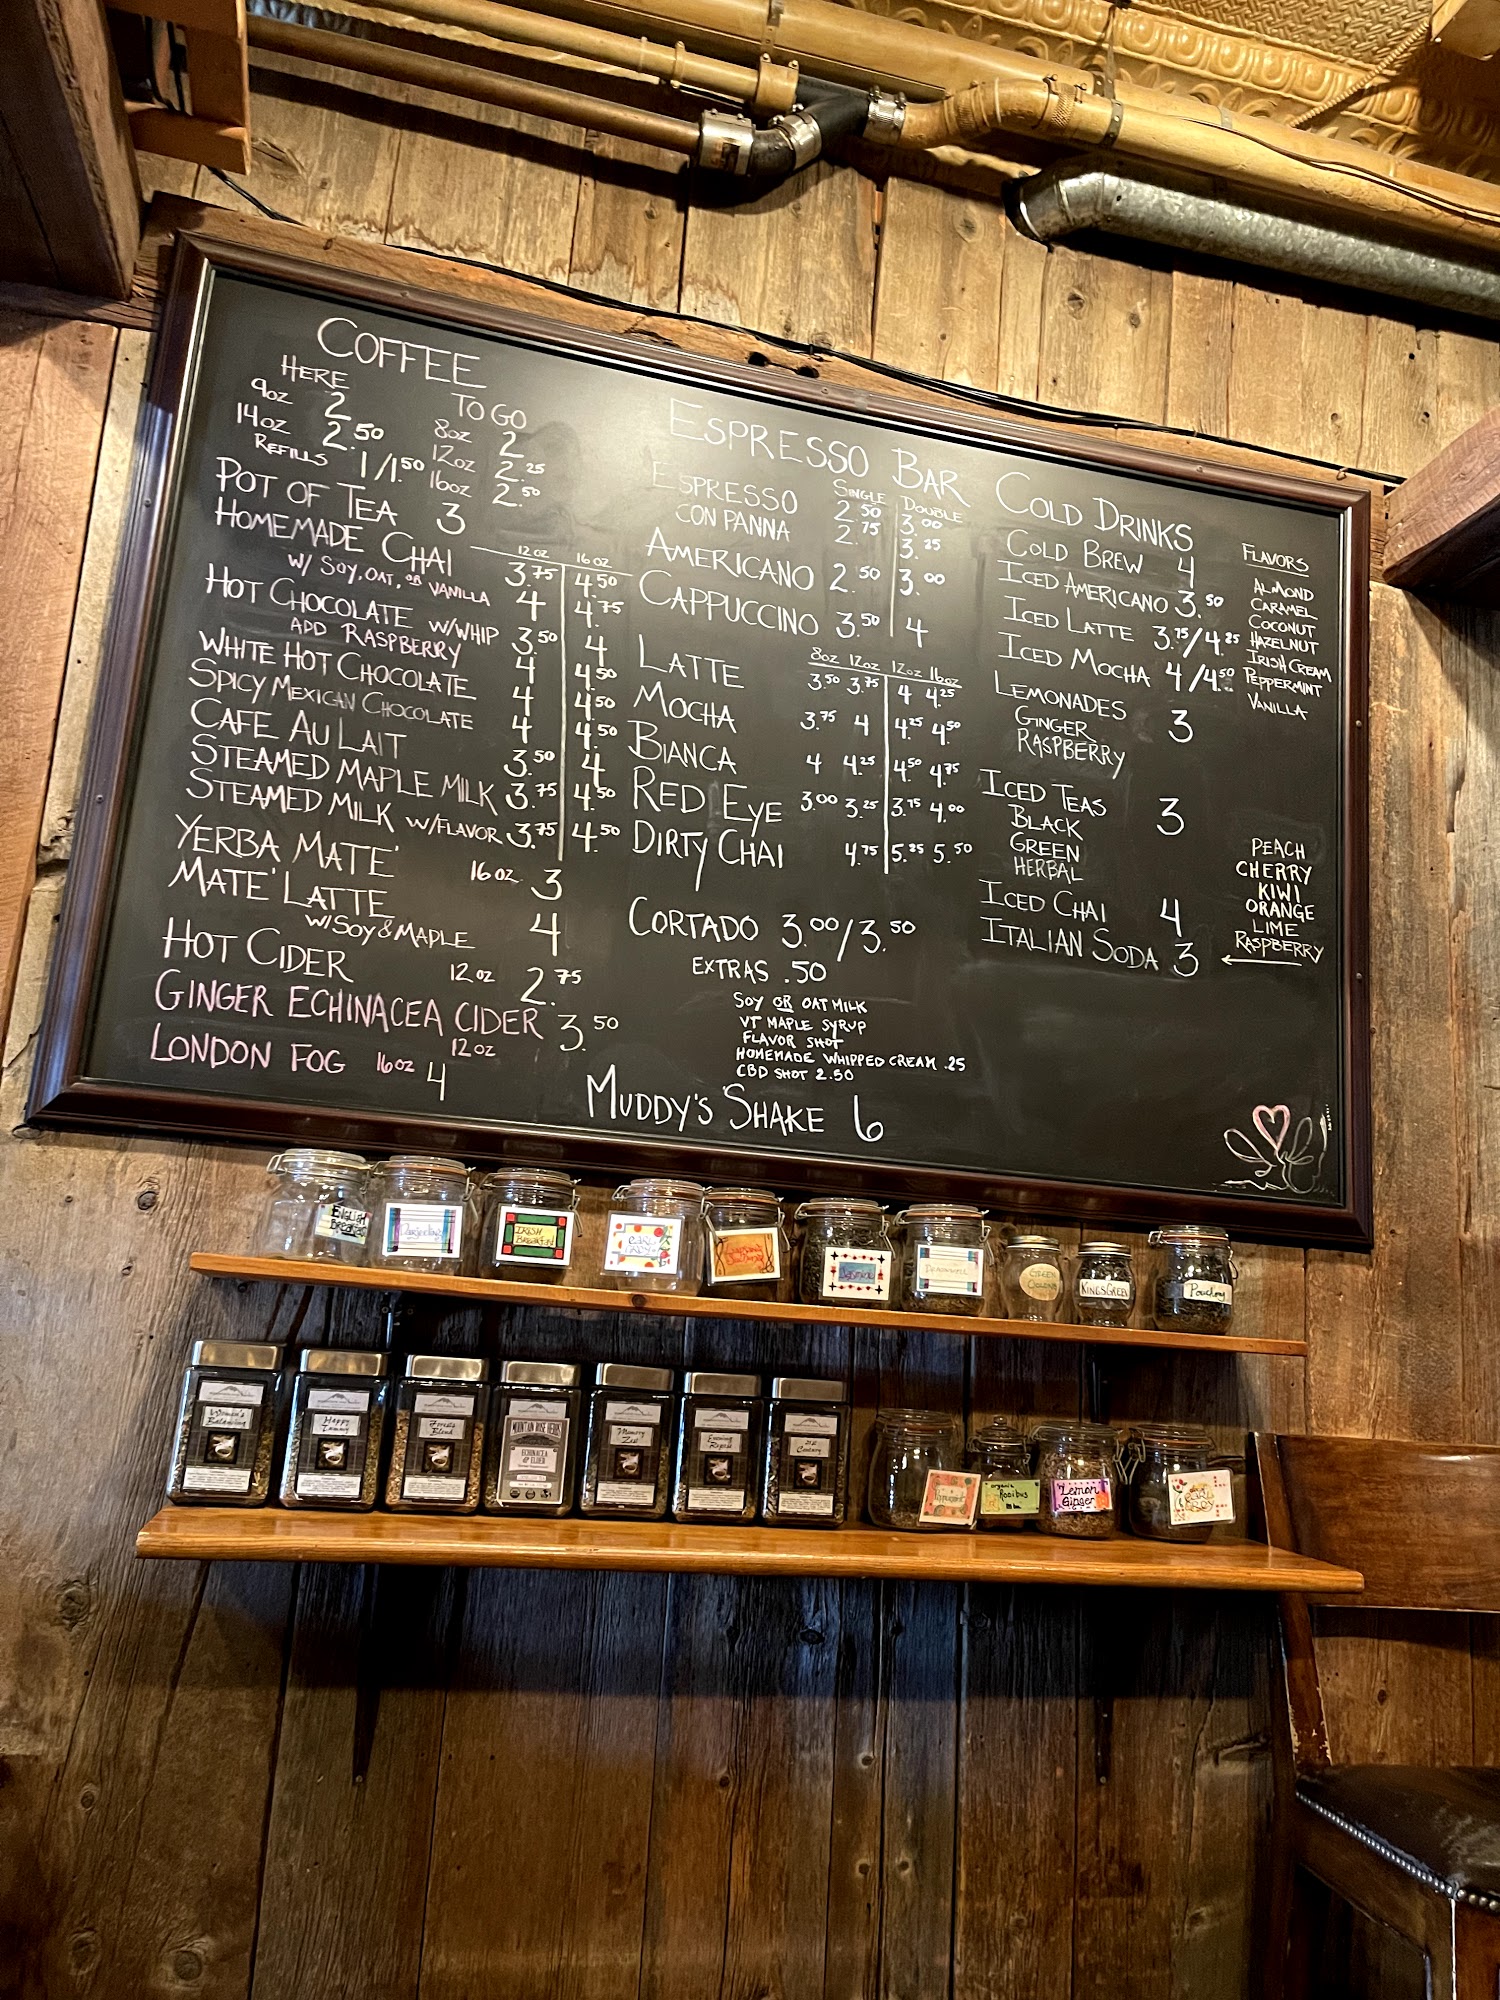 COFFEE
HERE
9oz 2
14oz 2.50
REFILLS 1/1.50
TO GO
8oz 2
12oz 2.25
16oz 2.50
POT OF TEA 3
12oz 16oz
HOMEMADE CHAI 3.75 4.50
W/ SOY, OAT, OR VANILLA 4 4.75
HOT CHOCOLATE W/WHIP 3.50 4
ADD RASPBERRY 4 4.50
WHITE HOT CHOCOLATE 4 4.50
SPICY MEXICAN CHOCOLATE 4 4.50
CAFE AU LAIT 3.50 4
STEAMED MAPLE MILK 3.75 4.50
STEAMED MILK W/FLAVOR 3.75 4.50
YERBA MATE' 16oz. 3
MATE' LATTE
W/SOY & MAPLE 4
HOT CIDER 12oz 2.75
GINGER ECHINACEA CIDER 3.50
12oz
LONDON FOG 16oz 4
ESPRESSO BAR
SINGLE DOUBLE
ESPRESSO 2.50 3.00
CON PANNA 2.75 3.25
AMERICANO 2.50 3.00
CAPPUCCINO 3.50 4
8oz 12oz 12oz 16oz
LATTE 3.50 3.75 4 4.25
MOCHA 3.75 4 4.25 4.50
BIANCA 4 4.25 4.50 4.75
RED EYE 3.00 3.25 3.75 4.00
DIRTY CHAI 4.75 5.25 5.50
CORTADO 3.00/3.50
EXTRAS .50
SOY OR OAT MILK
VT MAPLE SYRUP
FLAVOR SHOT
HOMEMADE WHIPPED CREAM .25
CBD SHOT 2.50
MUDDY'S SHAKE 6
COLD DRINKS
COLD BREW 4
ICED AMERICANO 3.50
ICED LATTE 3.75/4.25
ICED MOCHA 4/4.50
LEMONADES 3
GINGER
RASPBERRY
ICED TEAS 3
BLACK
GREEN
HERBAL
ICED CHAI 4
ITALIAN SODA 3
FLAVORS
ALMOND
CARAMEL
COCONUT
HAZELNUT
IRISH CREAM
PEPPERMINT
VANILLA
PEACH
CHERRY
KIWI
ORANGE
LIME
RASPBERRY
ENGLISH
BREAKFAST
Darjeeling
IRISH
BREAKFAST
EARL
GREY
JASMINE
DRAGONWELL
KINGS GREEN
Pouchong
Women's
Balancing
Happy
Tummy
Forest
Blend
MOUNTAIN ROSE HERBS
ECHINACEA
& ELDER
Memory
Zest
Evening
Repose
21st
Century
Peppermint
ORGANIC
Rooibus
Lemon
Ginger